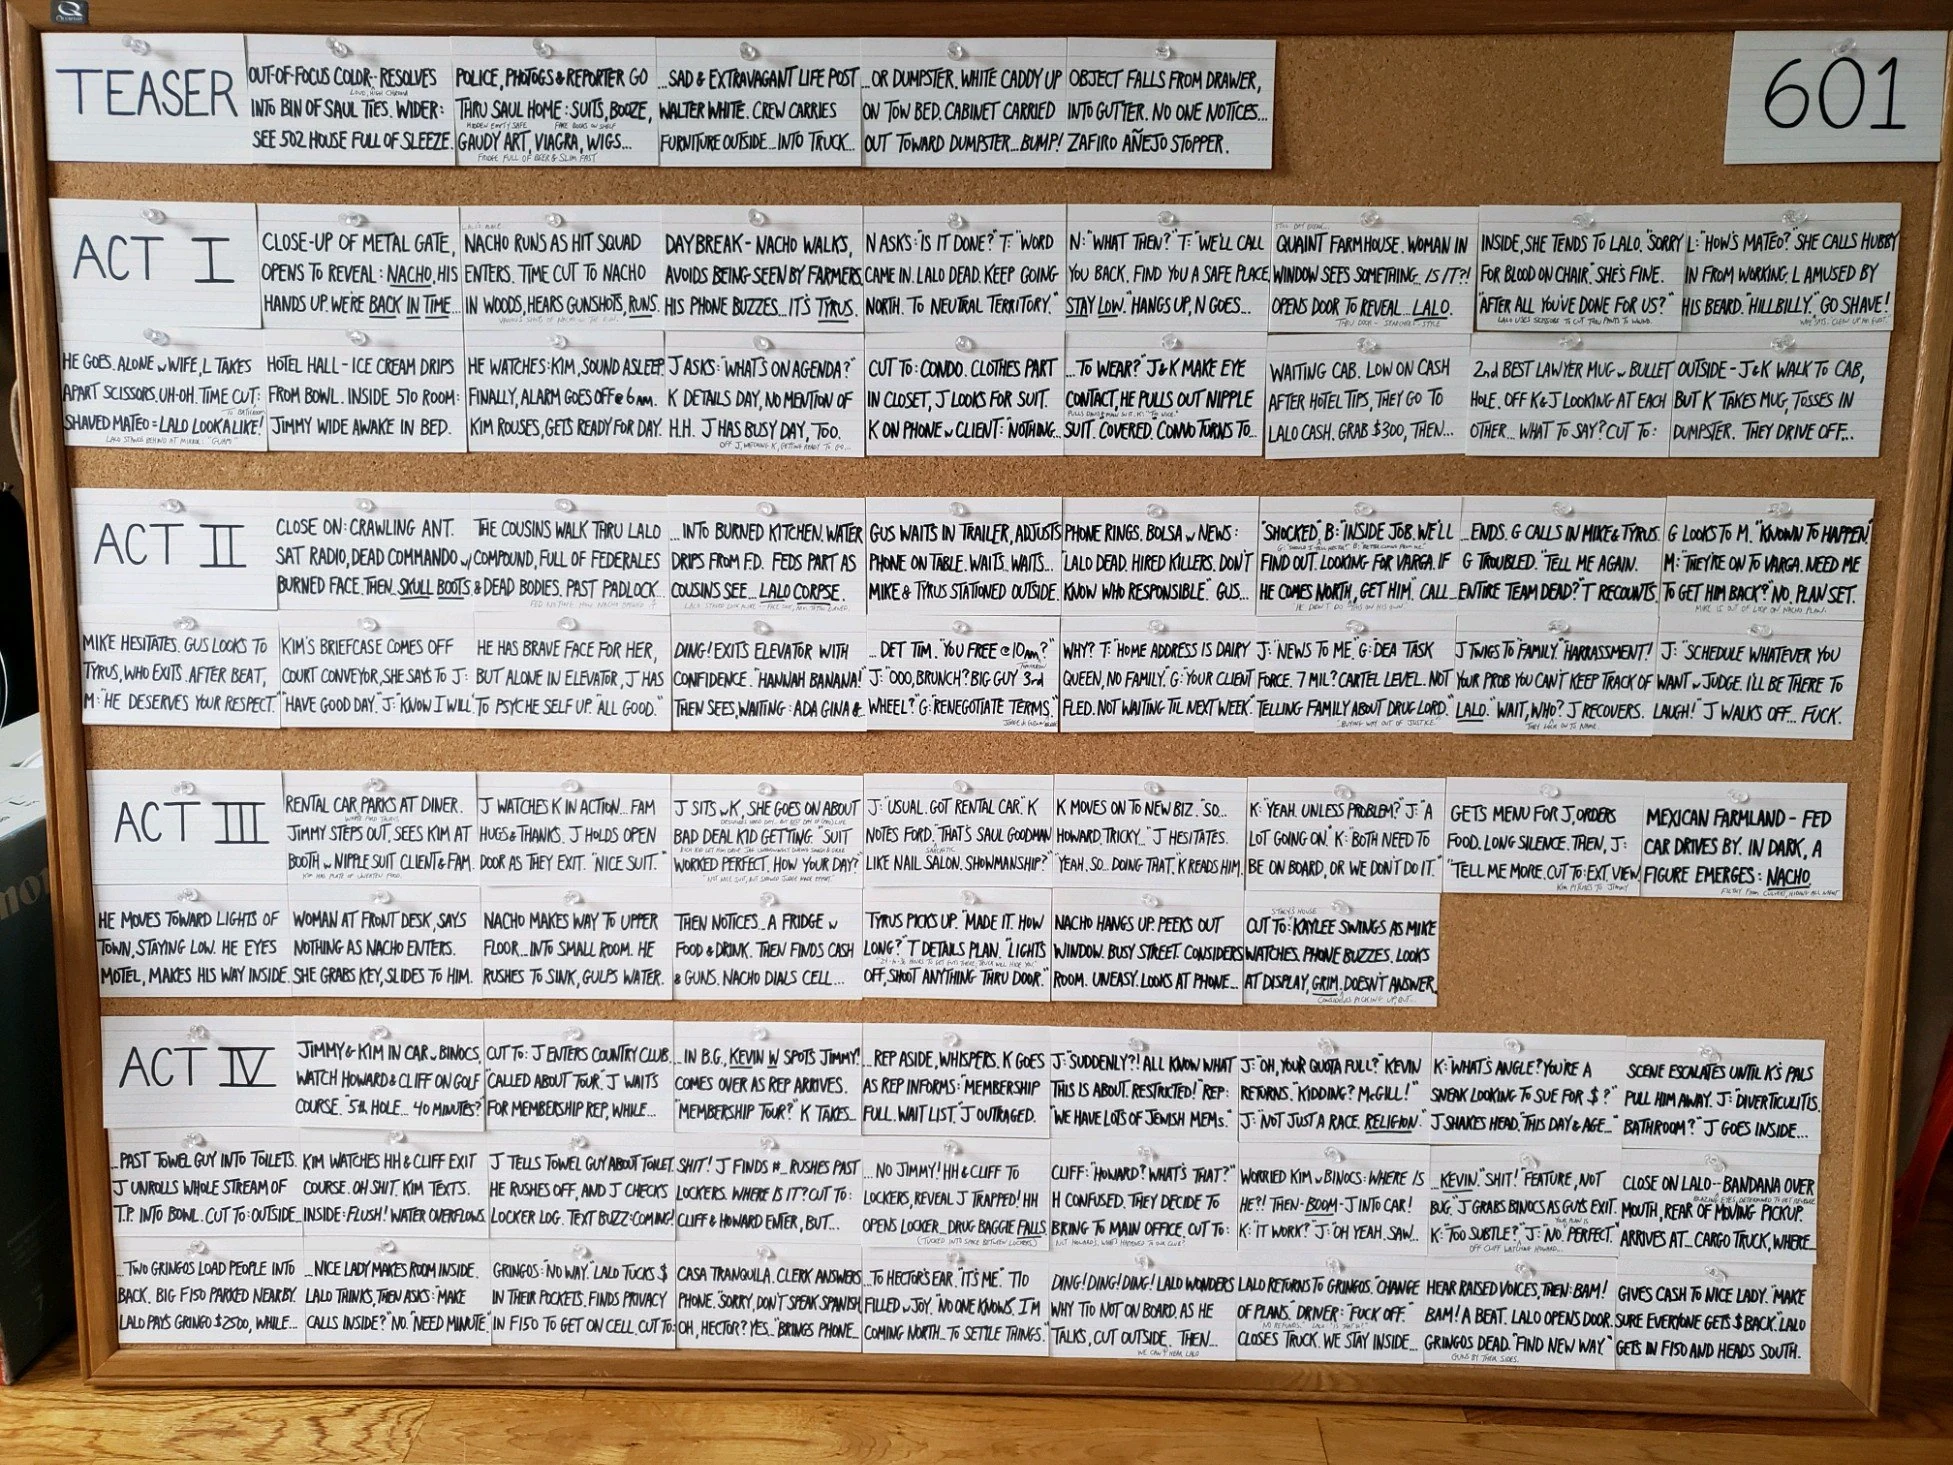 TEASER
OUT-OF-FOCUS COLOR-- RESOLVES
LOUD, HIGH CHROMA
INTO BIN OF SAUL TIES. WIDER:
SEE 502 HOUSE FULL OF SLEEZE.
POLICE, PHOTOGS & REPORTER GO
THRU SAUL HOME: SUITS, BOOZE,
HIDDEN EMPTY SAFE FAKE BOOKS ON SHELF
GAUDY ART, VIAGRA, WIGS...
FRIDGE FULL OF BEER & SLIM FAST
...SAD & EXTRAVAGANT LIFE POST
WALTER WHITE. CREW CARRIES
FURNITURE OUTSIDE...INTO TRUCK...
...OR DUMPSTER. WHITE CADDY UP
ON TOW BED. CABINET CARRIED
OUT TOWARD DUMPSTER...BUMP!
OBJECT FALLS FROM DRAWER,
INTO GUTTER. NO ONE NOTICES...
ZAFIRO AÑEJO STOPPER.
601
ACT I
CLOSE-UP OF METAL GATE,
OPENS TO REVEAL: NACHO, HIS
HANDS UP. WE'RE BACK IN TIME...
NACHO RUNS AS HIT SQUAD
ENTERS. TIME CUT TO NACHO
IN WOODS, HEARS GUNSHOTS, RUNS.
DAYBREAK - NACHO WALKS,
AVOIDS BEING SEEN BY FARMERS
HIS PHONE BUZZES...IT'S TYRUS.
N ASKS: "IS IT DONE?" T: "WORD
CAME IN. LALO DEAD. KEEP GOING
NORTH. TO NEUTRAL TERRITORY."
N: "WHAT THEN?" T: "WE'LL CALL
YOU BACK. FIND YOU A SAFE PLACE
STAY LOW." HANGS UP, N GOES...
QUAINT FARMHOUSE. WOMAN IN
WINDOW SEES SOMETHING... IS IT?!
OPENS DOOR TO REVEAL... LALO.
THRU DOOR - SEARCHERS-STYLE
INSIDE, SHE TENDS TO LALO. "SORRY
FOR BLOOD ON CHAIR." SHE'S FINE.
"AFTER ALL YOU'VE DONE FOR US?"
LALO USES SCISSORS TO CUT THRU PANTS TO WOUND.
L: "HOW'S MATEO?" SHE CALLS HUBBY
IN FROM WORKING. L AMUSED BY
HIS BEARD. "HILLBILLY." GO SHAVE!
HE GOES. ALONE w WIFE, L TAKES
APART SCISSORS. UH-OH. TIME CUT:
TO BATHROOM
SHAVED MATEO = LALO LOOKALIKE!
HOTEL HALL - ICE CREAM DRIPS
FROM BOWL. INSIDE 510 ROOM:
JIMMY WIDE AWAKE IN BED.
HE WATCHES: KIM, SOUND ASLEEP.
FINALLY, ALARM GOES OFF @ 6AM.
KIM ROUSES, GETS READY FOR DAY.
J ASKS: "WHAT'S ON AGENDA?"
K DETAILS DAY, NO MENTION OF
H.H. J HAS BUSY DAY, TOO.
OFF J, WATCHING K, GETTING READY TO GO...
CUT TO: CONDO. CLOTHES PART
IN CLOSET, J LOOKS FOR SUIT.
K ON PHONE w CLIENT: "NOTHING...
...TO WEAR?" J & K MAKE EYE
CONTACT, HE PULLS OUT NIPPLE
SUIT. COVERED. CONVO TURNS TO...
WAITING CAB. LOW ON CASH
AFTER HOTEL TIPS, THEY GO TO
LALO CASH. GRAB $300, THEN...
2nd BEST LAWYER MUG w BULLET
HOLE. OFF K & J LOOKING AT EACH
OTHER... WHAT TO SAY? CUT TO:
OUTSIDE - J & K WALK TO CAB,
BUT K TAKES MUG, TOSSES IN
DUMPSTER. THEY DRIVE OFF...
ACT II
CLOSE ON: CRAWLING ANT.
SAT RADIO, DEAD COMMANDO w/
BURNED FACE. THEN, SKULL BOOTS
THE COUSINS WALK THRU LALO
COMPOUND, FULL OF FEDERALES
& DEAD BODIES. PAST PADLOCK...
...INTO BURNED KITCHEN. WATER
DRIPS FROM F.D. FEDS PART AS
COUSINS SEE... LALO CORPSE.
GUS WAITS IN TRAILER, ADJUSTS
PHONE ON TABLE. WAITS. WAITS...
MIKE & TYRUS STATIONED OUTSIDE.
PHONE RINGS. BOLSA w NEWS:
"LALO DEAD. HIRED KILLERS. DON'T
KNOW WHO RESPONSIBLE." GUS...
"SHOCKED". B: "INSIDE JOB. WE'LL
FIND OUT. LOOKING FOR VARGA. IF
HE COMES NORTH, GET HIM." CALL...
HE DIDN'T DO THIS ON HIS OWN.
...ENDS. G CALLS IN MIKE & TYRUS.
G TROUBLED. "TELL ME AGAIN.
ENTIRE TEAM DEAD?" T RECOUNTS.
G LOOKS TO M. "KNOWN TO HAPPEN."
M: "THEY'RE ON TO VARGA. NEED ME
TO GET HIM BACK?" NO, PLAN SET.
MIKE IS OUT OF LOOP ON NACHO PLAN.
MIKE HESITATES. GUS LOOKS TO
TYRUS, WHO EXITS. AFTER BEAT,
M: "HE DESERVES YOUR RESPECT."
KIM'S BRIEFCASE COMES OFF
COURT CONVEYOR, SHE SAYS TO J:
"HAVE GOOD DAY." J: "KNOW I WILL."
HE HAS BRAVE FACE FOR HER,
BUT ALONE IN ELEVATOR, J HAS
TO PSYCHE SELF UP. "ALL GOOD."
DING! EXITS ELEVATOR WITH
CONFIDENCE. "HANNAH BANANA!"
THEN SEES, WAITING: ADA GINA &
...DET TIM. "YOU FREE @ 10AM?"
TOMORROW
J: "OOO, BRUNCH? BIG GUY 3rd
WHEEL?" G: "RENEGOTIATE TERMS."
WHY? T: "HOME ADDRESS IS DAIRY
QUEEN, NO FAMILY. G: "YOUR CLIENT
FLED. NOT WAITING TIL NEXT WEEK"
J: "NEWS TO ME." G: "DEA TASK
FORCE. 7 MIL? CARTEL LEVEL. NOT
TELLING FAMILY ABOUT DRUG LORD."
"BUYING WAY OUT OF JUSTICE"
J TWIGS TO "FAMILY." "HARRASSMENT!
YOUR PROB YOU CAN'T KEEP TRACK OF
LALO. "WAIT, WHO? J RECOVERS.
THEY LOCK ON TO NAME.
J: "SCHEDULE WHATEVER YOU
WANT w JUDGE. I'LL BE THERE TO
LAUGH!" J WALKS OFF... FUCK.
ACT III
RENTAL CAR PARKS AT DINER.
WHITE FORD TAURUS
JIMMY STEPS OUT, SEES KIM AT
BOOTH w NIPPLE SUIT CLIENT & FAM.
KIM HAS PLATE OF UNEATEN FOOD.
J WATCHES K IN ACTION... FAM
HUGS & THANKS. J HOLDS OPEN
DOOR AS THEY EXIT. "NICE SUIT."
J SITS w K, SHE GOES ON ABOUT
BAD DEAL KID GETTING. "SUIT
WORKED PERFECT. HOW YOUR DAY?"
"NOT NICE SUIT, BUT SHOWED JUDGE MADE EFFORT."
J: "USUAL. GOT RENTAL CAR." K
NOTES FORD. "THAT'S SAUL GOODMAN
SARCASTIC
LIKE NAIL SALON. SHOWMANSHIP?"
K MOVES ON TO NEW BIZ. "SO...
HOWARD. TRICKY..." J HESITATES.
"YEAH. SO.. DOING THAT." K READS HIM.
K: "YEAH. UNLESS PROBLEM?" J: "A
LOT GOING ON." K: "BOTH NEED TO
BE ON BOARD, OR WE DON'T DO IT."
GETS MENU FOR J, ORDERS
FOOD. LONG SILENCE. THEN, J:
"TELL ME MORE. CUT TO: EXT. VIEW
KIM PITCHES TO JIMMY
MEXICAN FARMLAND - FED
CAR DRIVES BY. IN DARK, A
FIGURE EMERGES: NACHO.
HE MOVES TOWARD LIGHTS OF
TOWN, STAYING LOW. HE EYES
MOTEL, MAKES HIS WAY INSIDE.
WOMAN AT FRONT DESK, SAYS
NOTHING AS NACHO ENTERS.
SHE GRABS KEY, SLIDES TO HIM.
NACHO MAKES WAY TO UPPER
FLOOR...INTO SMALL ROOM. HE
RUSHES TO SINK, GULPS WATER.
THEN NOTICES...A FRIDGE w
FOOD & DRINK. THEN FINDS CASH
& GUNS. NACHO DIALS CELL...
TYRUS PICKS UP. "MADE IT. HOW
LONG?" T DETAILS PLAN. "LIGHTS
OFF, SHOOT ANYTHING THRU DOOR."
NACHO HANGS UP. PEEKS OUT
WINDOW. BUSY STREET. CONSIDERS
ROOM. UNEASY. LOOKS AT PHONE...
STACY'S HOUSE
CUT TO: KAYLEE SWINGS AS MIKE
WATCHES. PHONE BUZZES, LOOKS
AT DISPLAY, GRIM. DOESN'T ANSWER.
CONSIDERS PICKING UP, BUT...
ACT IV
JIMMY & KIM IN CAR w BINOCS,
WATCH HOWARD & CLIFF ON GOLF
COURSE. "5th HOLE... 40 MINUTES?"
CUT TO: J ENTERS COUNTRY CLUB.
"CALLED ABOUT TOUR." J WAITS
FOR MEMBERSHIP REP, WHILE...
...IN B.G., KEVIN W SPOTS JIMMY!
COMES OVER AS REP ARRIVES.
"MEMBERSHIP TOUR?" K TAKES...
...REP ASIDE, WHISPERS. K GOES
AS REP INFORMS: "MEMBERSHIP
FULL. WAIT LIST." J OUTRAGED.
J: "SUDDENLY?! ALL KNOW WHAT
THIS IS ABOUT. RESTRICTED!" REP:
"WE HAVE LOTS OF JEWISH MEMS."
J: "OH, YOUR QUOTA FULL?" KEVIN
RETURNS. "KIDDING? McGILL!"
J: "NOT JUST A RACE. RELIGION."
K: "WHAT'S ANGLE? YOU'RE A
SNEAK LOOKING TO SUE FOR $?"
J SHAKES HEAD. "THIS DAY & AGE..."
SCENE ESCALATES UNTIL K'S PALS
PULL HIM AWAY. J: "DIVERTICULITIS.
BATHROOM?" J GOES INSIDE...
...PAST TOWEL GUY INTO TOILETS.
J UNROLLS WHOLE STREAM OF
T.P. INTO BOWL. CUT TO: OUTSIDE...
KIM WATCHES HH & CLIFF EXIT
COURSE. OH SHIT. KIM TEXTS.
INSIDE: FLUSH! WATER OVERFLOWS
J TELLS TOWEL GUY ABOUT TOILET.
HE RUSHES OFF, AND J CHECKS
LOCKER LOG. TEXT BUZZ: COMING!
SHIT! J FINDS #... RUSHES PAST
LOCKERS. WHERE IS IT? CUT TO:
CLIFF & HOWARD ENTER, BUT...
...NO JIMMY! HH & CLIFF TO
LOCKERS, REVEAL J TRAPPED! HH
OPENS LOCKER... DRUG BAGGIE FALLS
(TUCKED INTO SPACE BETWEEN LOCKERS)
CLIFF: "HOWARD? WHAT'S THAT?"
H CONFUSED. THEY DECIDE TO
BRING TO MAIN OFFICE. CUT TO:
NOT HOWARD'S. WHAT'S HAPPENED TO OUR CLUB?
WORRIED KIM w BINOCS: WHERE IS
HE?! THEN - BOOM - J INTO CAR!
K: "IT WORK?" J: "OH YEAH. SAW...
...KEVIN." "SHIT!" FEATURE, NOT
BUG." J GRABS BINOCS AS GUYS EXIT.
YOUR PLAN IS
K: "TOO SUBTLE?" J: "NO. PERFECT."
OFF CLIFF WATCHING HOWARD...
CLOSE ON LALO -- BANDANA OVER
BLAZING EYES, DETERMINED TO GET REVENGE
MOUTH, REAR OF MOVING PICKUP.
ARRIVES AT... CARGO TRUCK, WHERE...
...TWO GRINGOS LOAD PEOPLE INTO
BACK. BIG F150 PARKED NEARBY.
LALO PAYS GRINGO $2500, WHILE...
...NICE LADY MAKES ROOM INSIDE.
LALO THINKS, THEN ASKS: "MAKE
CALLS INSIDE?" "NO." "NEED MINUTE."
GRINGOS: "NO WAY." LALO TUCKS $
IN THEIR POCKETS. FINDS PRIVACY
IN F150 TO GET ON CELL. CUT TO:
CASA TRANQUILA. CLERK ANSWERS
PHONE. "SORRY, DON'T SPEAK SPANISH
OH, HECTOR? YES." BRINGS PHONE...
...TO HECTOR'S EAR. "IT'S ME." TIO
FILLED w JOY. "NO ONE KNOWS. I'M
COMING NORTH... TO SETTLE THINGS."
DING! DING! DING! LALO WONDERS
WHY TIO NOT ON BOARD. AS HE
TALKS, CUT OUTSIDE. THEN...
WE CAN'T HEAR LALO
LALO RETURNS TO GRINGOS. "CHANGE
OF PLANS." DRIVER: "FUCK OFF."
CLOSES TRUCK. WE STAY INSIDE...
HEAR RAISED VOICES, THEN: BAM!
BAM! A BEAT. LALO OPENS DOOR.
GRINGOS DEAD. "FIND NEW WAY."
GUNS BY THEIR SIDES.
GIVES CASH TO NICE LADY. "MAKE
SURE EVERYONE GETS $ BACK." LALO
GETS IN F150 AND HEADS SOUTH.